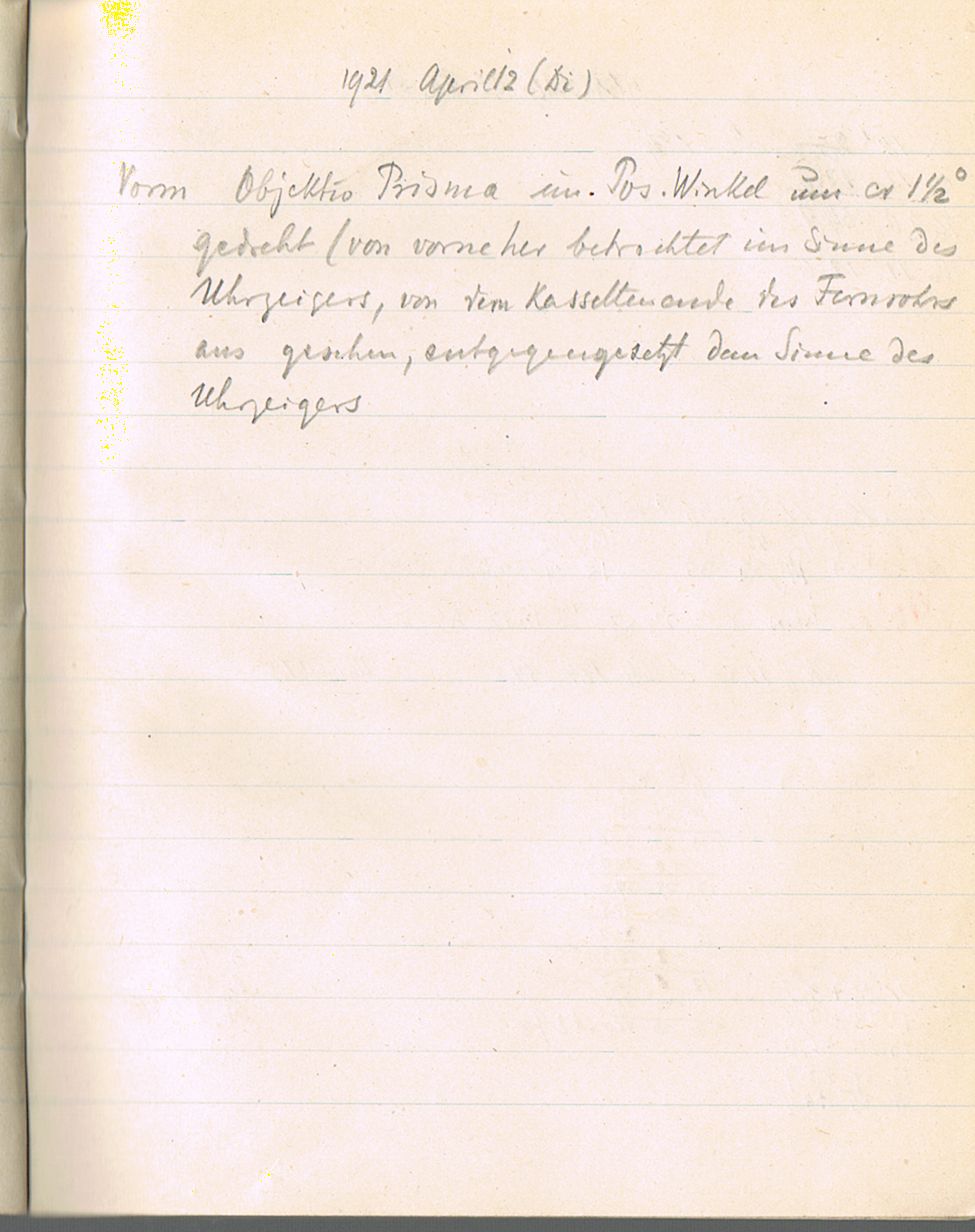 1921 April 12 (Di)
Vorm Objektiv Prisma im. Pos. Winkel um ca 1 1/2°
gedreht (von vorne her betrachtet im Sinne des
Uhrzeigers, von dem Kassettenende des Fernrohrs
aus gesehen, entgegengesetzt dem Sinne des
Uhrzeigers